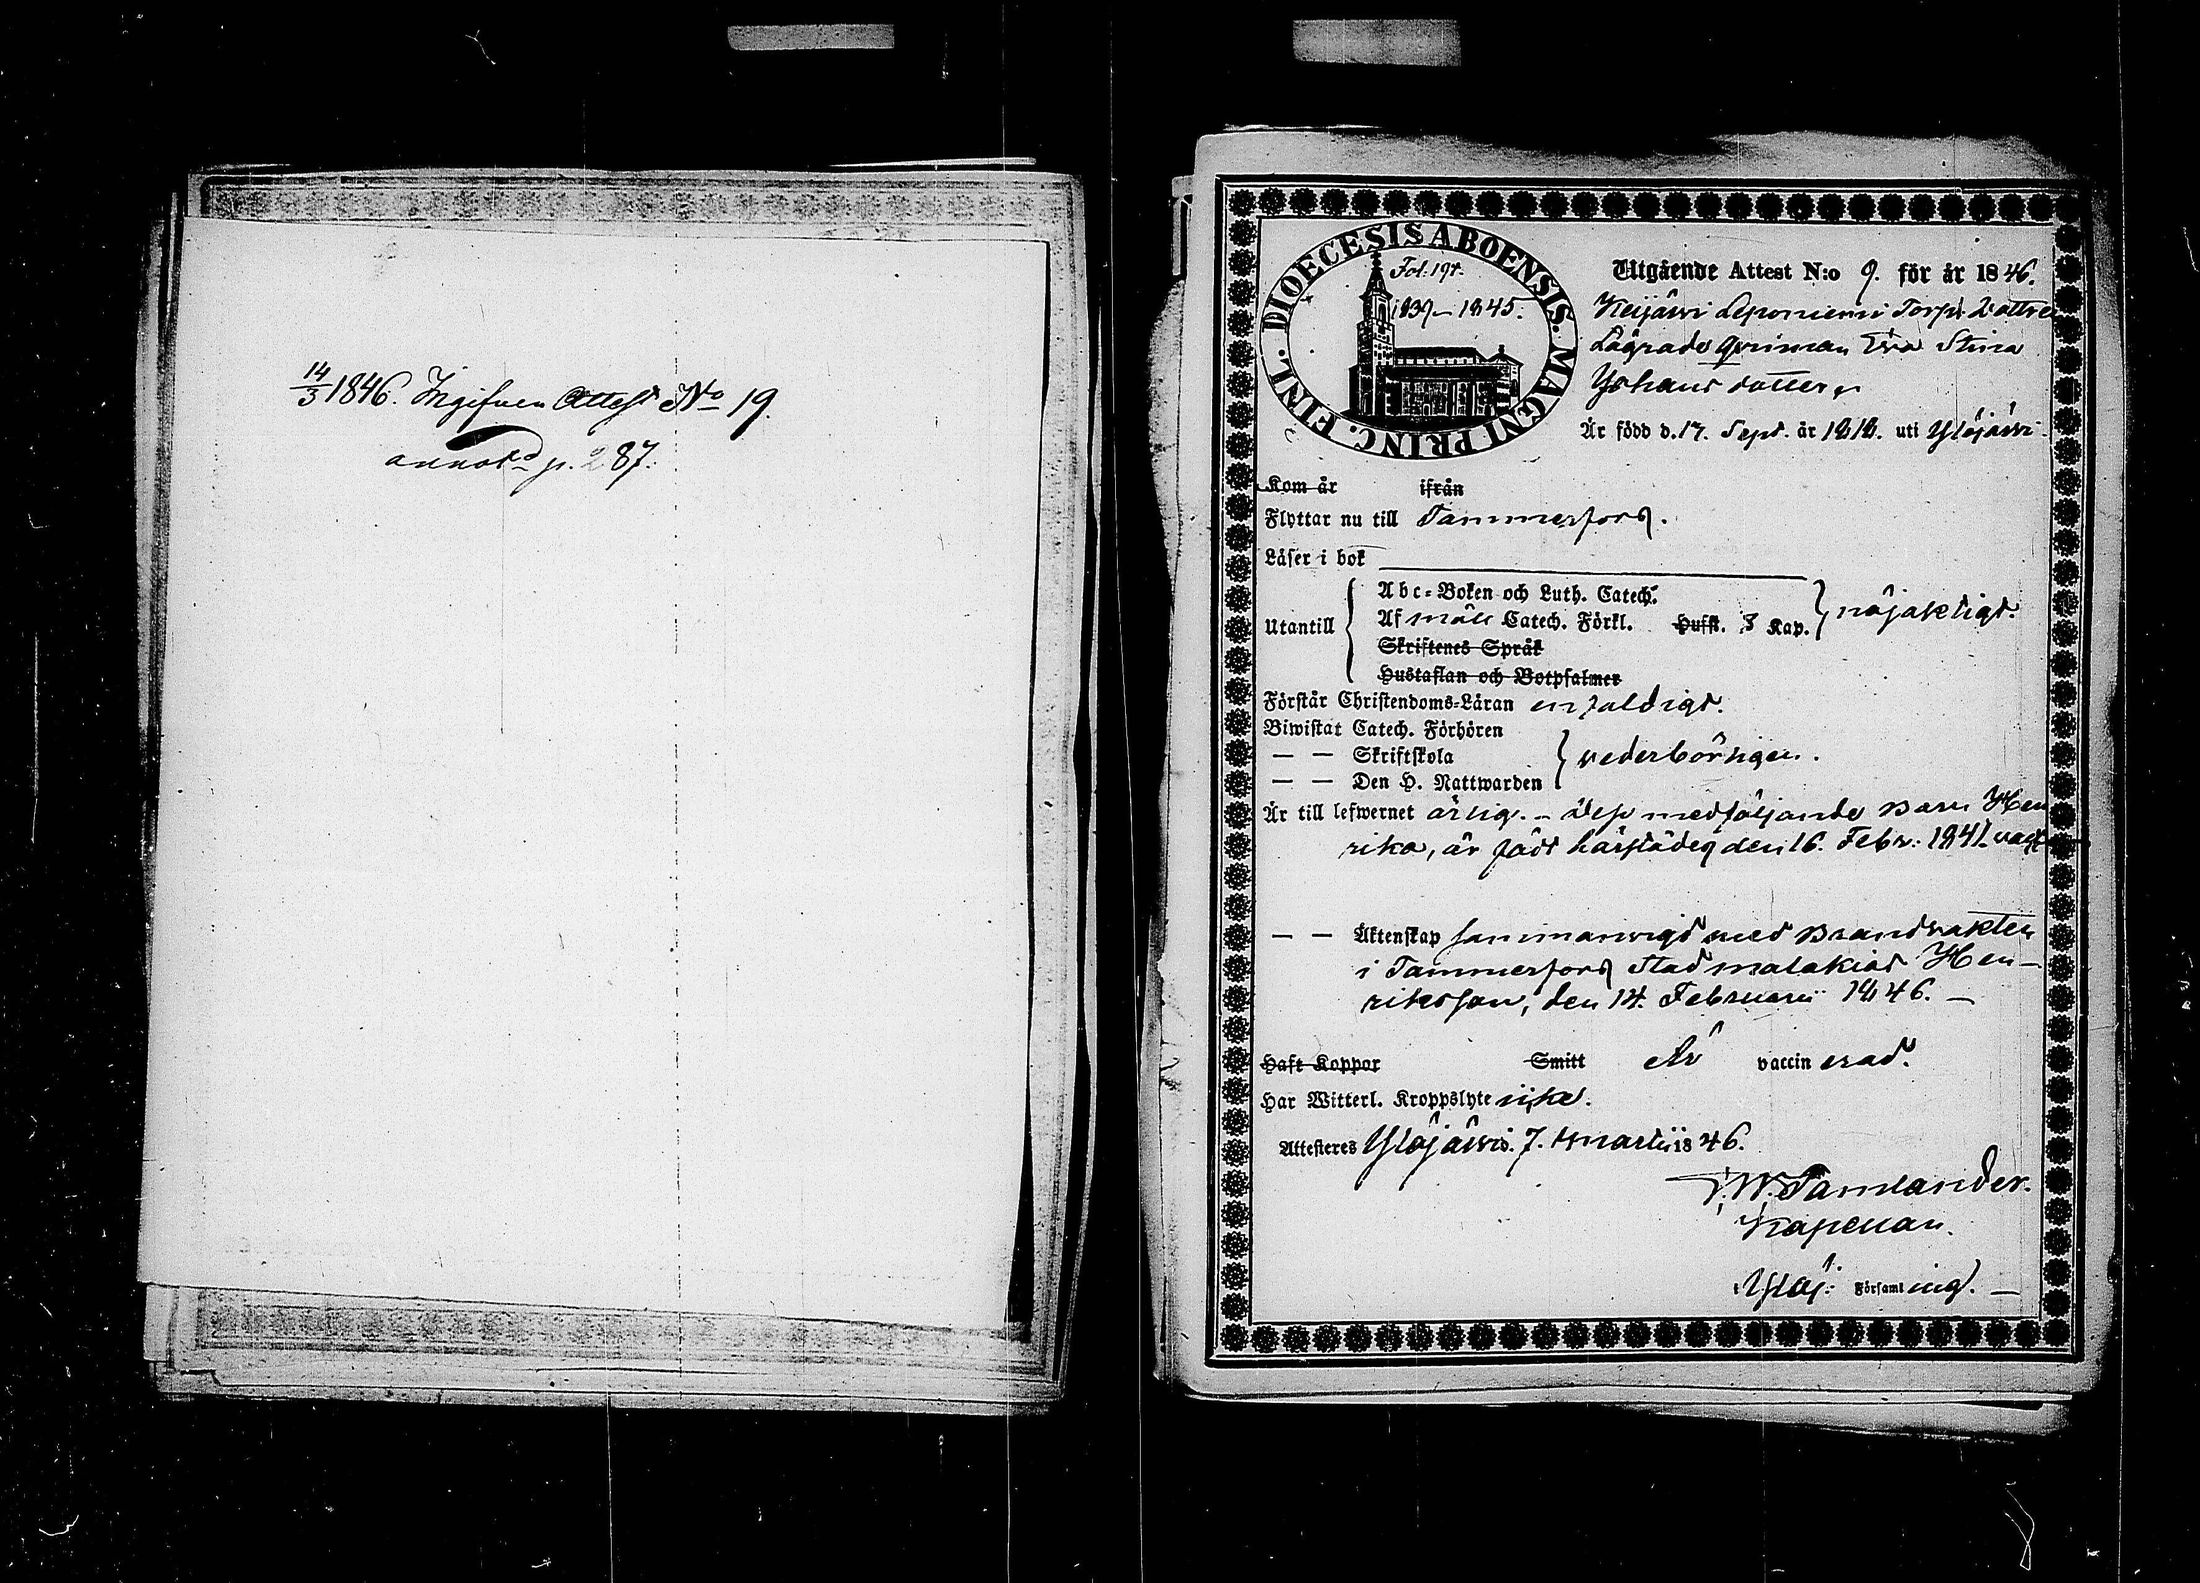 14/3 1846. Ingifven Attest No 19.
annotd p. 287.
DIOECESIS ABOENSIS. MAGNI PRINC. FINL.
Fol. 197.
1839–1845.
Utgående Attest N:o 9. för år 1846.
Keijärvi Leponiemi Torp
Lägrade qvinnan Eva Stina
Johans dotter,
Är född d. 17. Sept. år 1818. uti Ylöjärvi
Kom år ifrån
Flyttar nu till Tammerfors.
Läser i bok
Utantill
Abc-Boken och Luth. Catech.
Af Catech. Förkl. Husst. 3 Kap.
Skriftenes Språk
Hustaflan och Botpsalmer
nöjaktigt.
Förstår Christendoms-Läran enfaldigt.
Biwistat Catech. Förhören
— — Skriftskola
— — Den H. Nattwarden
vederbörligen.
Är till lefwernet ärlig. – Dess medföljande Barn Hen
rika, är född härstädes den 16. Febr: 1841.
— — Äktenskap sammanvigd med Brandvakten
i Tammerfors Stad Malakias Hen-
riksson, den 14. Februarii 1846. —
Haft Koppor Smitt Är vaccinerad.
Har Witterl. Kroppslyte icke.
Attesteres Ylöjärvi d. 7. Martii 1846.
Tamlander.
Kapellan.
i Ylöj: Församling. —